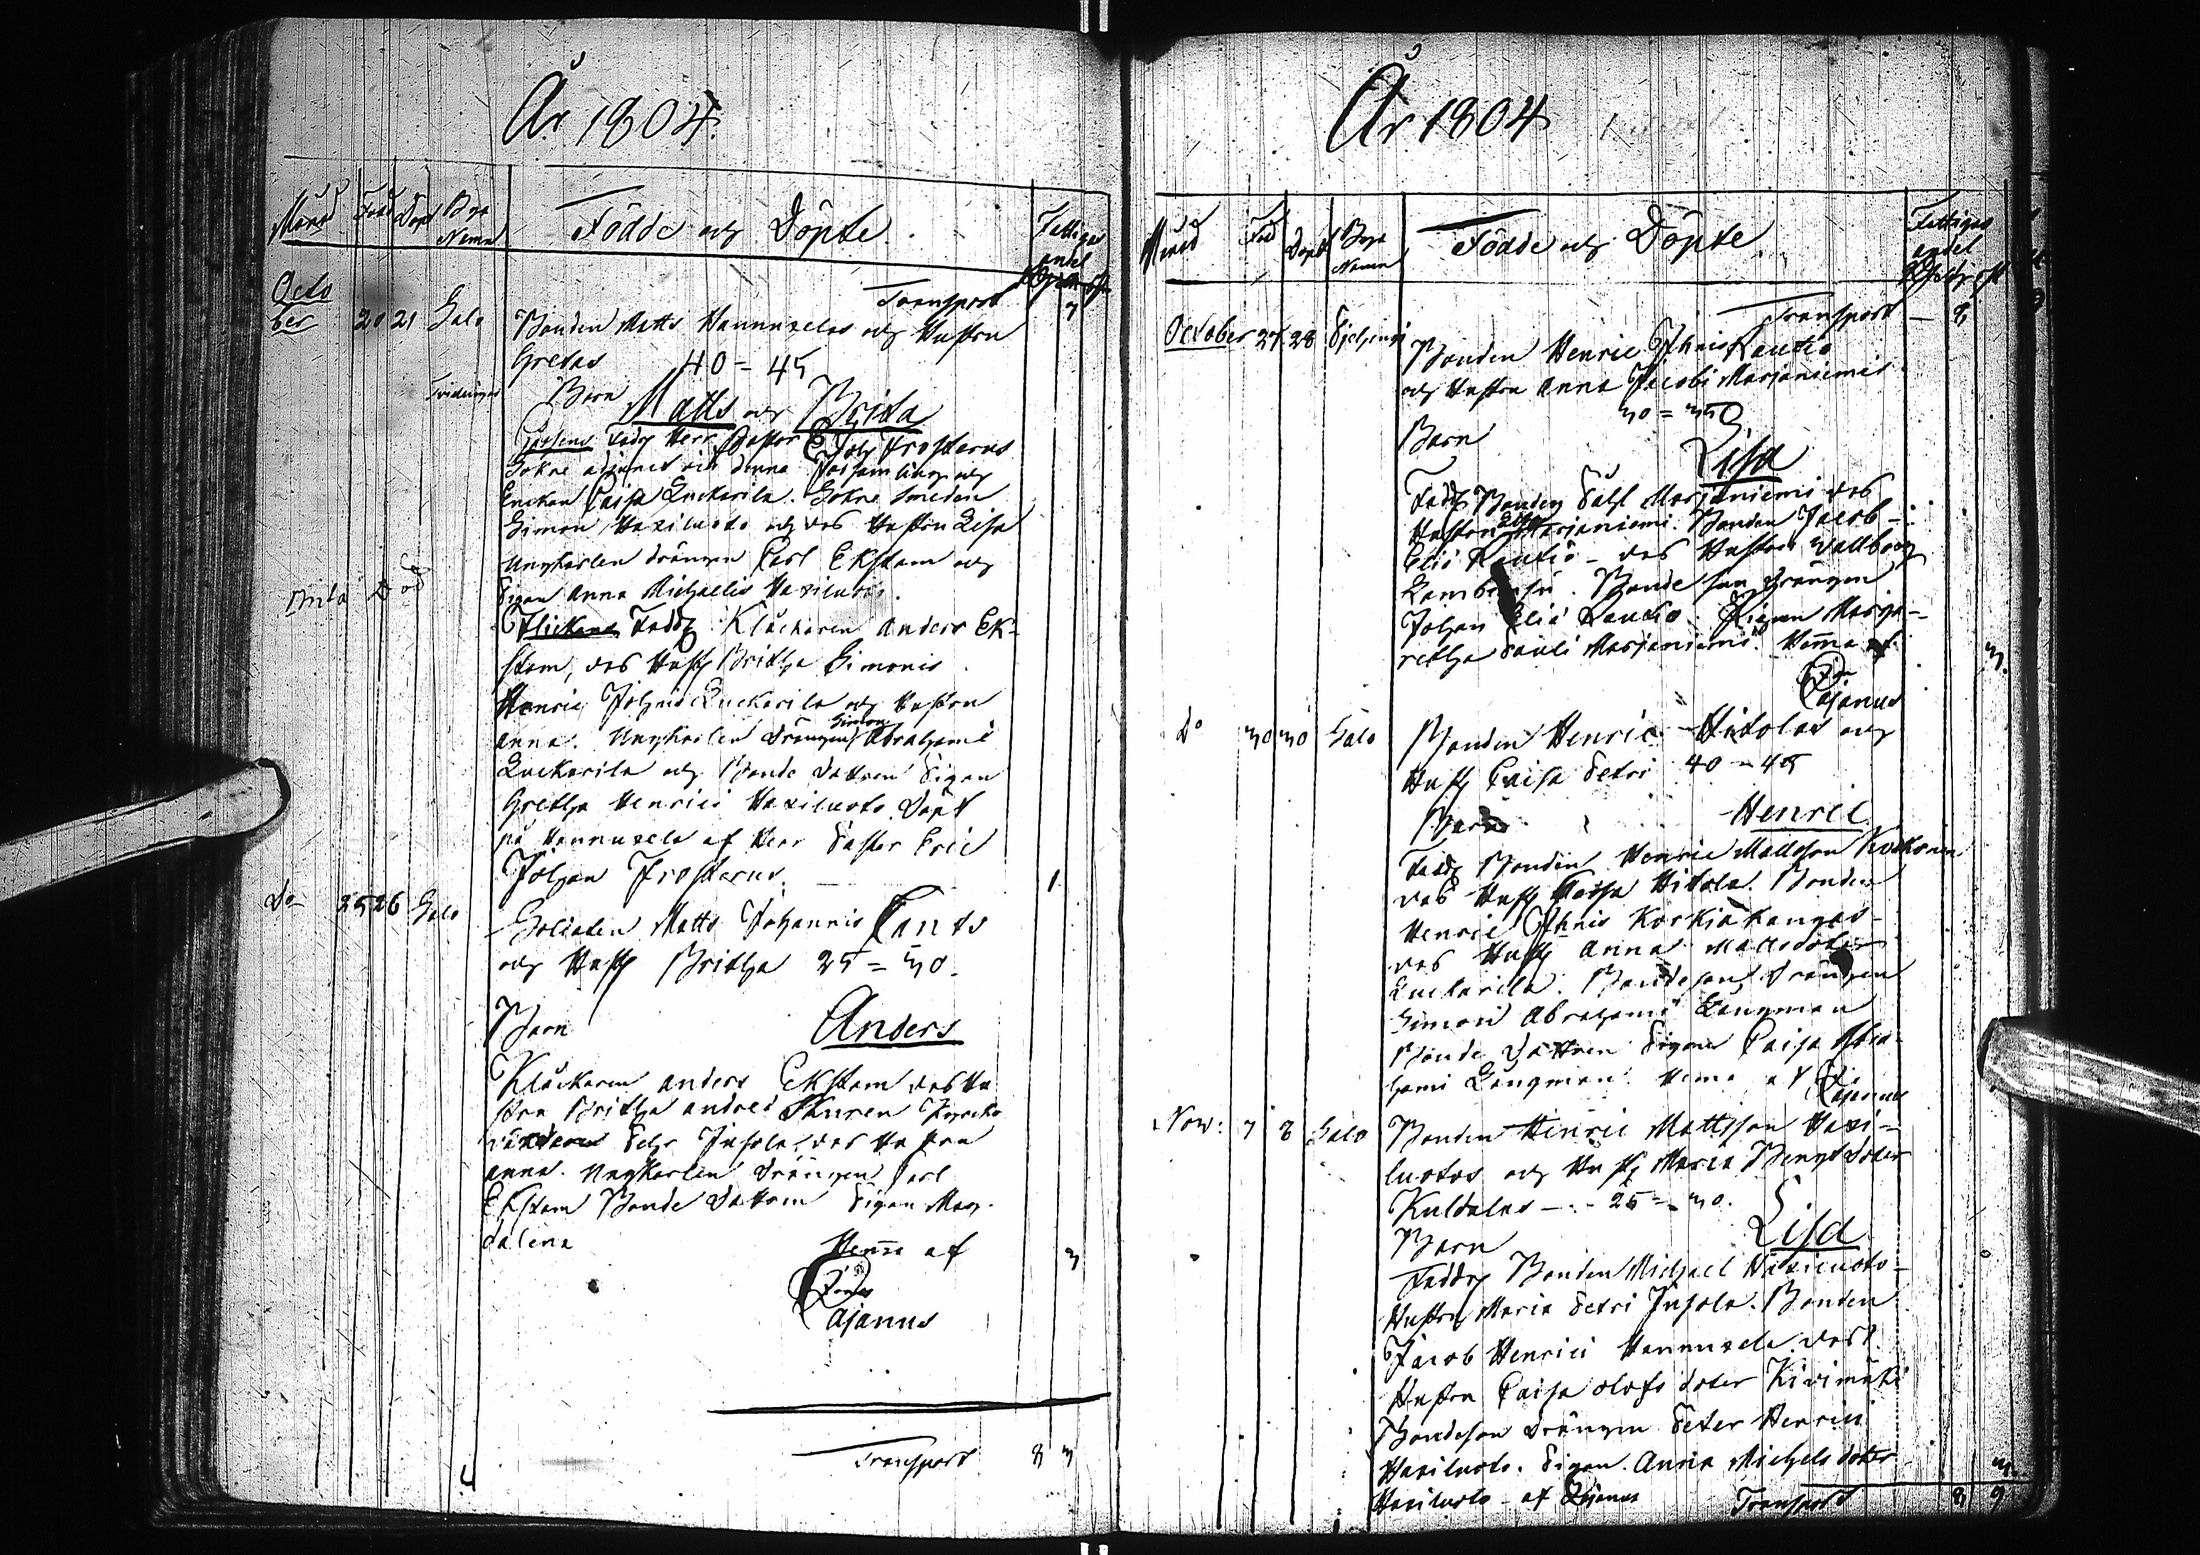 År 1804.
Månad Född Döpt Bya Namn Födde och Döpte. Fattigas andel
Transport 7
October 20 21 Salo Bonden Matts Hannuxelas och Hustru
Gretas 40 – 45
Tvillingar Barn Matts och Brita
Gossens Fadd Herr Pastor E Joh Frosterus
Sokne adjunct vid denna Församling och
Enckan Caisa Luckarila. Sokne Smeden
Simon Haxiluoto och des Hustru Lisa
Ungkarlen drängen Carl Ekstam och
Pigan Anna Michaelis Haxiluoto.
Brita Död
Flickans Fadd Klåckaren Anders Ek-
stam, des Hust Britha Simonis
Henric Johans Luckarila och Hustru
Anna. Ungkarlen Drängen Simon Abrahami
Luckarila och Bonde Dottren Pigan
Gretha Henrici Haxiluoto. Döpt
på Hannuxela af Herr Pastor Eric
Johan Frosterus. 1
Do 25 26 Salo Soldaten Matts Johannis Fants
och Hust Britha 25 = 30.
Barn Anders
Klåckaren Anders Ekstam des Hu
stru Britha Andreæ Kyrcko
wärden Pehr Juhola, des Hustru
Anna. Ungkarlen Drängen Carl
Ekstam Bonde Dottren Pigan Mag-
dalena Hema af 3
Cajanus
Transport 8 3
År 1804
Månad Född Döpt Bya Namn Födde och Döpte Fattigas andel
Transport – 8
October 27 28 Bonden Henric Johnis Rautio
och Hustru Anna Jacobi Marjaniemis
30 = 35
Barn Lisa
Fadd Bonden Påhl Marjaniemi des
Hustru Lisa Marjaniemi. Bonden Jacob
Eliæ Rautio – des Hustru Wallborg
Bonde son Drängen
Johan Eliæ Rautio. Pigan Marga-
retha Pauli Marjaniemi. Hema af 3.
Cajanus
Do 30 30 Salo Bonden Henric Hitolas och
Hust Caisa Petri 40 – 45
Barn Henric
Fadd Bonden Henric Mattsson
des Hust Caisa Hitola. Bonden
Henric Johnis Korkiakangas
des Hust Anna Mattsdoter
Luckarila. Bondeson Drängen
Simon Abrahami Langman
Bonde Dottren Pigan Caisa Abra-
hami Langman. Hema af Cajanus
Nov: 7 8 Salo Bonden Henric Mattsson Haxi-
luotos och Hust Maria Bengtdoter
Kuldalas – 25 = 30.
Barn Lisa
Fadd Bonden Michael Haxiluoto
Hustru Maria Petri Juhola. Bonden
Jacob Henrici Hannuxela des
Hustru Caisa Olofs doter Kivimäki
Bondeson Drängen Peter Henrici
Haxiluoto. Pigan Anna Michels doter 3
Haxiluoto – af Cajanus Transport 8 9